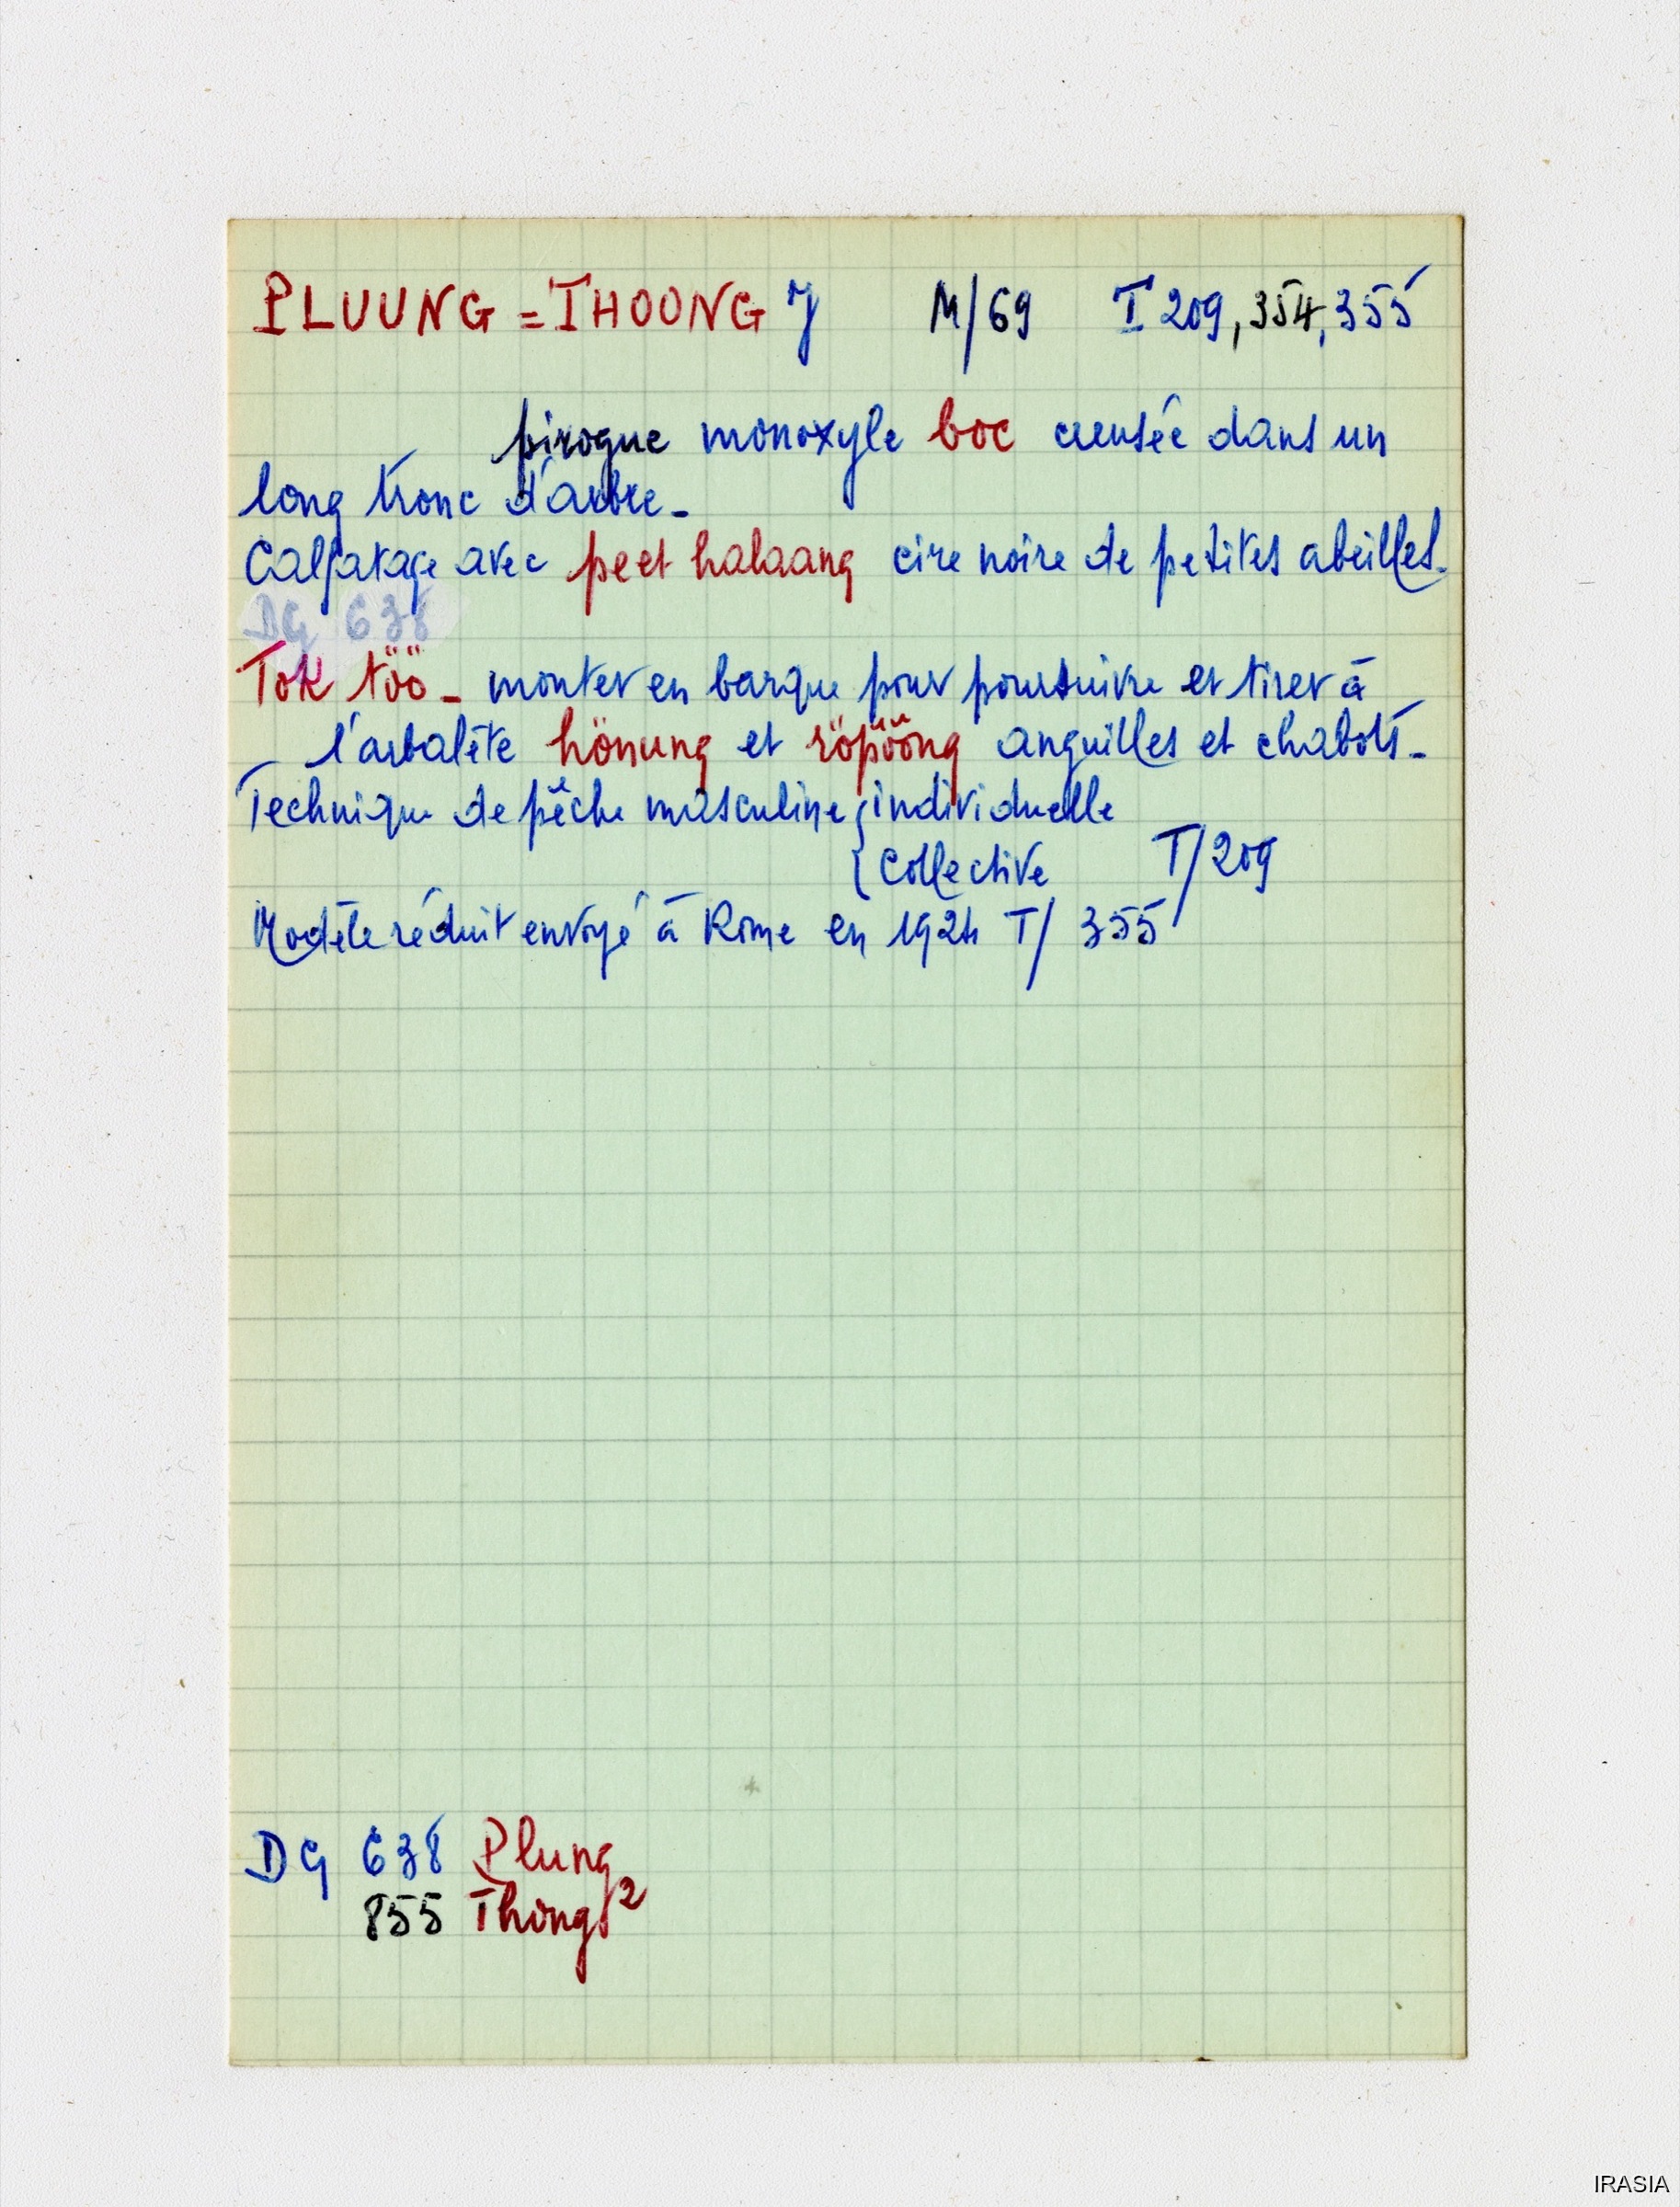 PLUUNG = THOONG J M/69 T 209, 354, 355
pirogue monoxyle boc creusée dans un
long tronc d'arbre -
Calfatage avec peet halaang cire noire de petites abeilles -
DG 638
Tok töö - monter en barque pour poursuivre et tirer à
l'arbalète hönung et röpööng anguilles et chabots -
Technique de pêche masculine { individuelle
{ collective T/209
Modèle réduit envoyé à Rome en 1924 T/ 355
DG 638 Plung
855 Thong 2
IRASIA